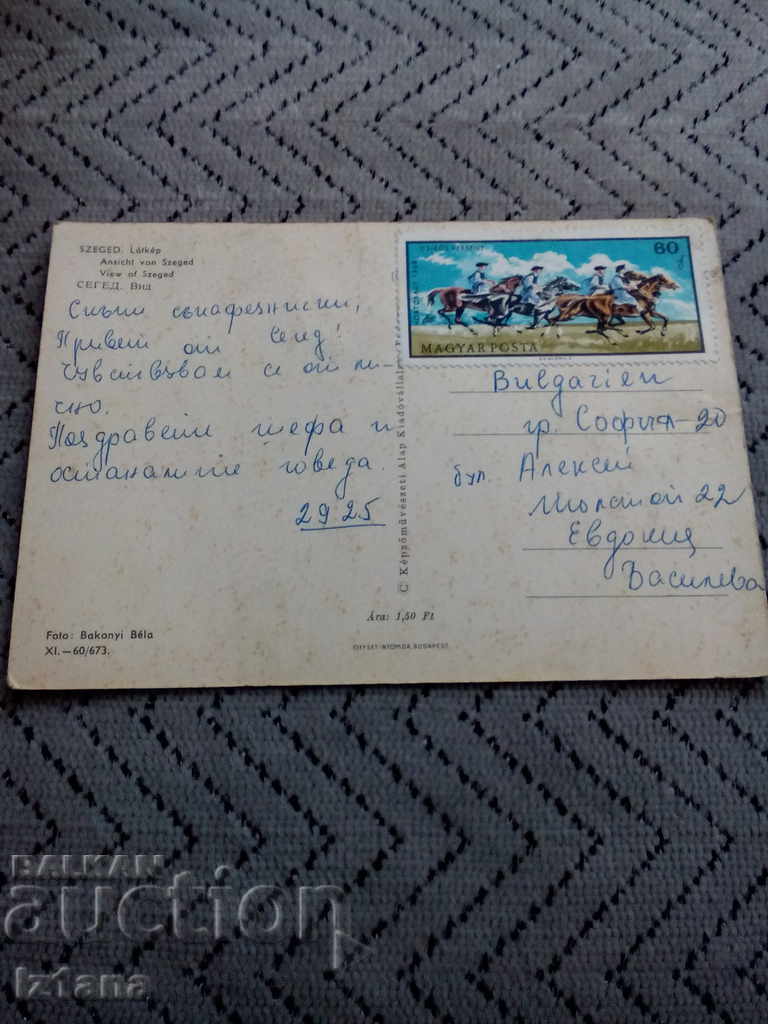 SZEGED. Látkép
Ansicht von Szeged
View of Szeged
СЕГЕД. Вид
Скъпи
Привет от Сегед!
Чувствувам се отли-
чно.
Поздравете шефа и
останалите говеда.
2925
60
MAGYAR POSTA
Bulgarien
гр. София-20
бул. Алексей
Толстой 22
Евдокия
Василева
C Képzőművészeti Alap Kiadóvállalata
Ára: 1,50 Ft
Foto: Bakonyi Béla
XI.—60/673.
OFFSET-NYOMDA, BUDAPEST
BALKAN
auction
Iz1ana